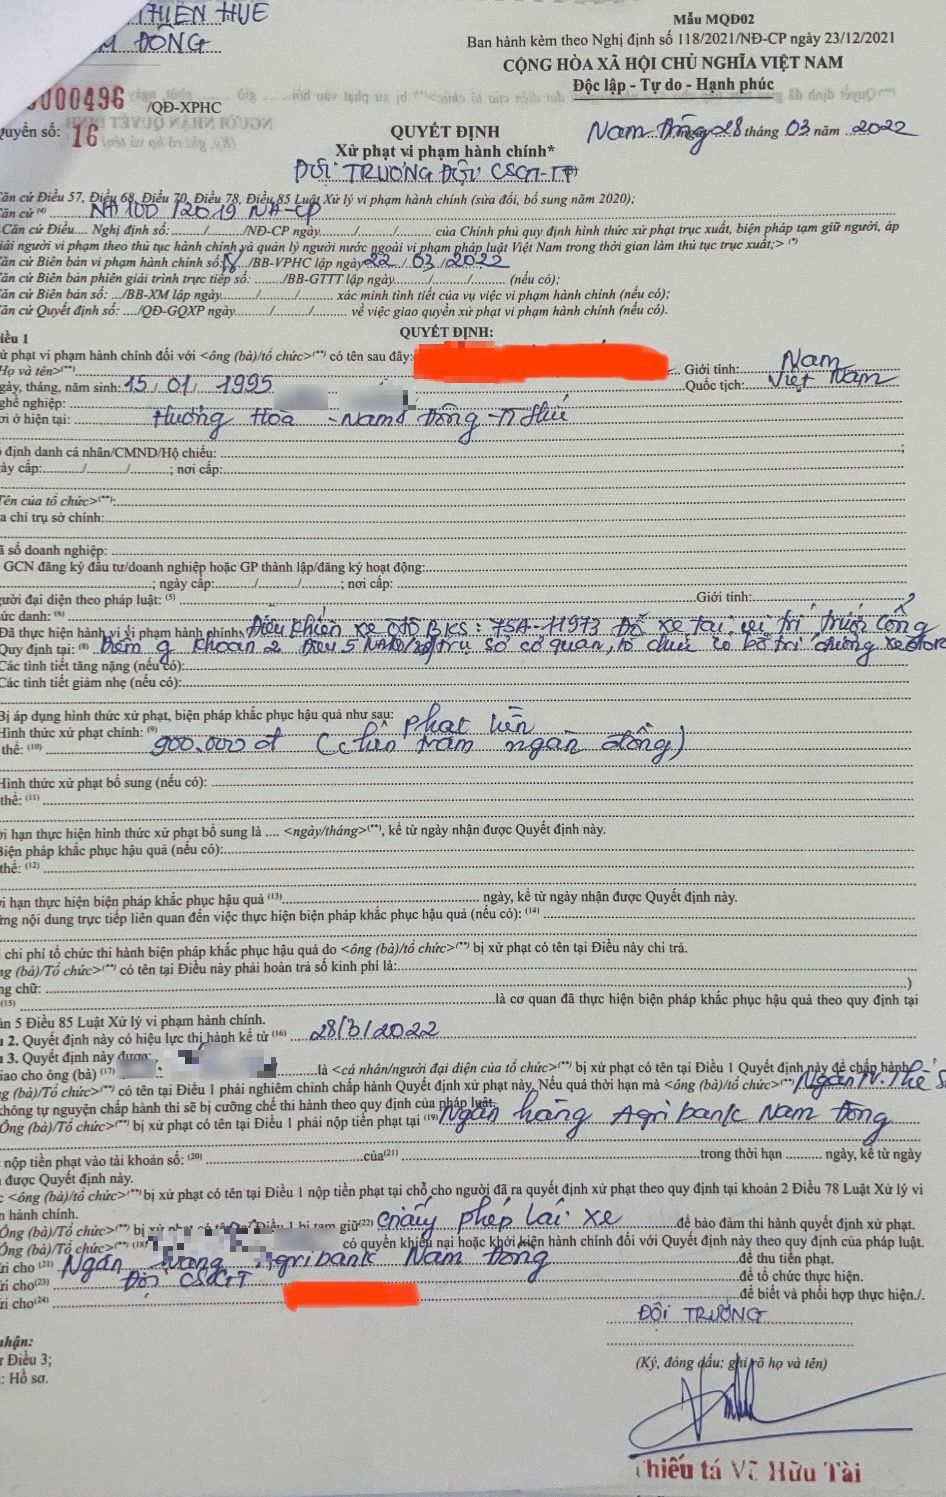 THIÊN HUẾ
M ĐÔNG
Mẫu MQĐ02
Ban hành kèm theo Nghị định số 118/2021/NĐ-CP ngày 23/12/2021
CỘNG HÒA XÃ HỘI CHỦ NGHĨA VIỆT NAM
Độc lập - Tự do - Hạnh phúc
0000496 /QĐ-XPHC
quyển số: 16
Nam Đông 28 tháng 03 năm 2022
QUYẾT ĐỊNH
Xử phạt vi phạm hành chính*
ĐỘI TRƯỞNG ĐỘI CSGT-TT
Căn cứ Điều 57, Điều 68, Điều 70, Điều 78, Điều 85 Luật Xử lý vi phạm hành chính (sửa đổi, bổ sung năm 2020);
Căn cứ (4) NĐ 100/2019 NĐ-CP
Căn cứ Điều.... Nghị định số:....../....../NĐ-CP ngày....../....../........ của Chính phủ quy định hình thức xử phạt trục xuất, biện pháp tạm giữ người, áp
giải người vi phạm theo thủ tục hành chính và quản lý người nước ngoài vi phạm pháp luật Việt Nam trong thời gian làm thủ tục trục xuất;> (*)
Căn cứ Biên bản vi phạm hành chính số: /BB-VPHC lập ngày 22/03/2022
Căn cứ Biên bản phiên giải trình trực tiếp số: ......../BB-GTTT lập ngày....../....../........ (nếu có);
Căn cứ Biên bản số: .../BB-XM lập ngày....../....../........ xác minh tình tiết của vụ việc vi phạm hành chính (nếu có);
Căn cứ Quyết định số: ..../QĐ-GQXP ngày....../....../........ về việc giao quyền xử phạt vi phạm hành chính (nếu có).
QUYẾT ĐỊNH:
iều 1
ử phạt vi phạm hành chính đối với <ông (bà)/tổ chức>(**) có tên sau đây:
Họ và tên>(**) Giới tính: Nam
gày, tháng, năm sinh: 15/01/1995 Quốc tịch: Việt Nam
ghề nghiệp:
ơi ở hiện tại: Hương Hoà - Nam Đông - T Huế
ố định danh cá nhân/CMND/Hộ chiếu: ;
ày cấp:....../....../........ ; nơi cấp:
Tên của tổ chức>(**):
a chỉ trụ sở chính:
ã số doanh nghiệp:
GCN đăng ký đầu tư/doanh nghiệp hoặc GP thành lập/đăng ký hoạt động:
; ngày cấp:....../....../........ ; nơi cấp:
gười đại diện theo pháp luật: (5) Giới tính:
ức danh: (6)
Đã thực hiện hành vi vi phạm hành chính: Điều khiển xe ôtô BKS: 75A-11973 Đỗ xe tại vị trí trước cổng
Quy định tại: (8) Điểm g khoản 2 Điều 5 trụ sở cơ quan, tổ chức có bố trí đường xe ôtô
Các tình tiết tăng nặng (nếu có):
Các tình tiết giảm nhẹ (nếu có):
Bị áp dụng hình thức xử phạt, biện pháp khắc phục hậu quả như sau:
Hình thức xử phạt chính: (9) Phạt tiền
thể: (10) 900.000 đ (chín trăm ngàn đồng)
Hình thức xử phạt bổ sung (nếu có):
thể: (11)
ời hạn thực hiện hình thức xử phạt bổ sung là .... <ngày/tháng>(**), kể từ ngày nhận được Quyết định này.
Biện pháp khắc phục hậu quả (nếu có):
thể: (12)
ời hạn thực hiện biện pháp khắc phục hậu quả (13) ngày, kể từ ngày nhận được Quyết định này.
ng nội dung trực tiếp liên quan đến việc thực hiện biện pháp khắc phục hậu quả (nếu có): (14)
chi phí tổ chức thi hành biện pháp khắc phục hậu quả do <ông (bà)/tổ chức>(**) bị xử phạt có tên tại Điều này chi trả.
ng (bà)/Tổ chức>(**) có tên tại Điều này phải hoàn trả số kinh phí là:
ng chữ: )
(15) là cơ quan đã thực hiện biện pháp khắc phục hậu quả theo quy định tại
ản 5 Điều 85 Luật Xử lý vi phạm hành chính.
u 2. Quyết định này có hiệu lực thi hành kể từ (16) 28/3/2022
u 3. Quyết định này được:
iao cho ông (bà) (17) là <cá nhân/người đại diện của tổ chức>(**) bị xử phạt có tên tại Điều 1 Quyết định này để chấp hành
ng (bà)/Tổ chức>(**) có tên tại Điều 1 phải nghiêm chỉnh chấp hành Quyết định xử phạt này. Nếu quá thời hạn mà <ông (bà)/tổ chức>(**)
không tự nguyện chấp hành thì sẽ bị cưỡng chế thi hành theo quy định của pháp luật.
Ông (bà)/Tổ chức>(**) bị xử phạt có tên tại Điều 1 phải nộp tiền phạt tại (19) Ngân hàng Agribank Nam Đông
nộp tiền phạt vào tài khoản số: (20) của(21) trong thời hạn ........ ngày, kể từ ngày
được Quyết định này.
<ông (bà)/tổ chức>(**) bị xử phạt có tên tại Điều 1 nộp tiền phạt tại chỗ cho người đã ra quyết định xử phạt theo quy định tại khoản 2 Điều 78 Luật Xử lý vi
m hành chính.
Ông (bà)/Tổ chức>(**) bị xử phạt có tên tại Điều 1 bị tạm giữ(22) Giấy phép lái xe để bảo đảm thi hành quyết định xử phạt.
Ông (bà)/Tổ chức>(**) (18) có quyền khiếu nại hoặc khởi kiện hành chính đối với Quyết định này theo quy định của pháp luật.
ửi cho (21) Ngân hàng Agribank Nam Đông để thu tiền phạt.
ửi cho(23) Đội CSGT để tổ chức thực hiện.
ửi cho(24) để biết và phối hợp thực hiện./.
ĐỘI TRƯỞNG
nhận:
ư Điều 3;
: Hồ sơ.
(Ký, đóng dấu; ghi rõ họ và tên)
Thiếu tá Võ Hữu Tài